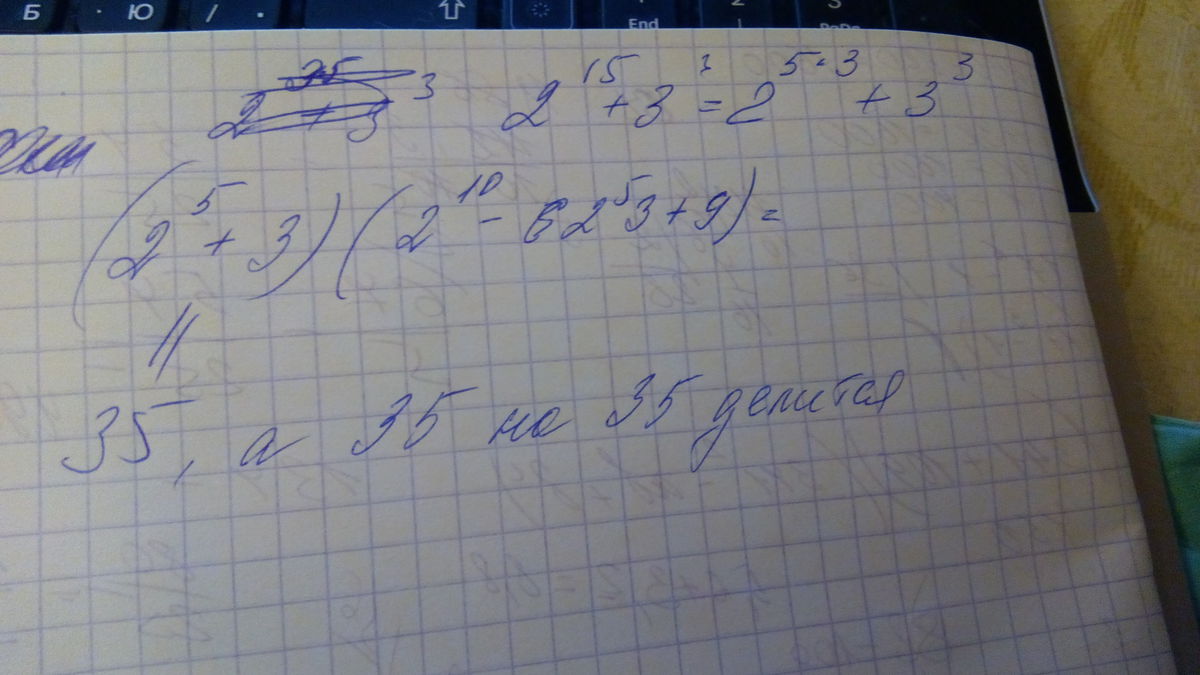 Б Ю / . ⇧ End 2 ↓ 3 PgDn
2 + 3³ 2¹⁵ + 3³ = 2⁵·³ + 3³
(2⁵ + 3)(2¹⁰ - 6 2⁵3 + 9) =
||
35, а 35 на 35 делится